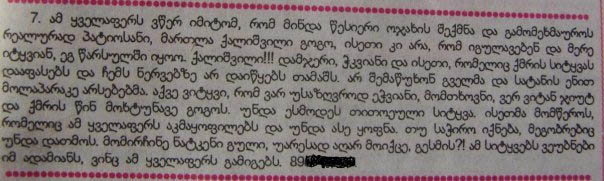 7. ამ ყველაფერს ვწერ იმიტომ, რომ მინდა წესიერი ოჯახის შექმნა და გამომეხმაუროს
რეალურად პატიოსანი, მართლა ქალიშვილი გოგო, ისეთი კი არა, რომ იგულავებენ და მერე
იტყვიან, ეგ წარსულში იყოო. ქალიშვილი!!! დამჯერი, ჭკვიანი და ისეთი, რომელიც ქმრის სიტყვას
დააფასებს და ჩემს ნერვებზე არ დაიწყებს თამაშს. არ შემაწუხონ გველმა და სატანის ენით
მოლაპარაკე არსებებმა. აქვე ვიტყვი, რომ ვარ უსაზღვროდ ეჭვიანი, მომთხოვნი, ვერ ვიტან ჯიუტ
და ქმრის წინ მოხტუნავე გოგოს. უნდა ესმოდეს თითოეული სიტყვა. ისეთმა მომწეროს,
რომელიც ამ ყველაფერს აკმაყოფილებს და უნდა ასე ყოფნა. თუ საჭირო იქნება, მეგობრებიც
უნდა დათმოს. მომირჩინე ნატკენი გული, უარესად აღარ მოიქცე, გესმის?! ამ სიტყვებს ვეუბნები
იმ ადამიანს, ვინც ამ ყველაფერს გამიგებს. 89